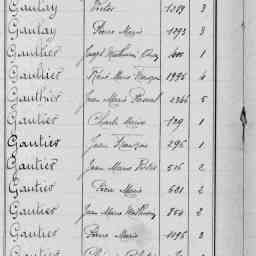 Gautay Victor 1019 3
Gautay Pierre Marie 1093 3
Gautier Joseph Mathurin 400 1
Gaultier René Marie François 1996 4
Gauthier Jean Marie Pascal 2366 5
Gautier Charles Marie 129 1
Gautier Jean François 296 1
Gautier Jean Marie Victor 516 2
Gautier Pierre Marie 621 2
Gautier Jean Marie Mathurin 854 2
Gautier Pierre Marie 1095 3
Gautier